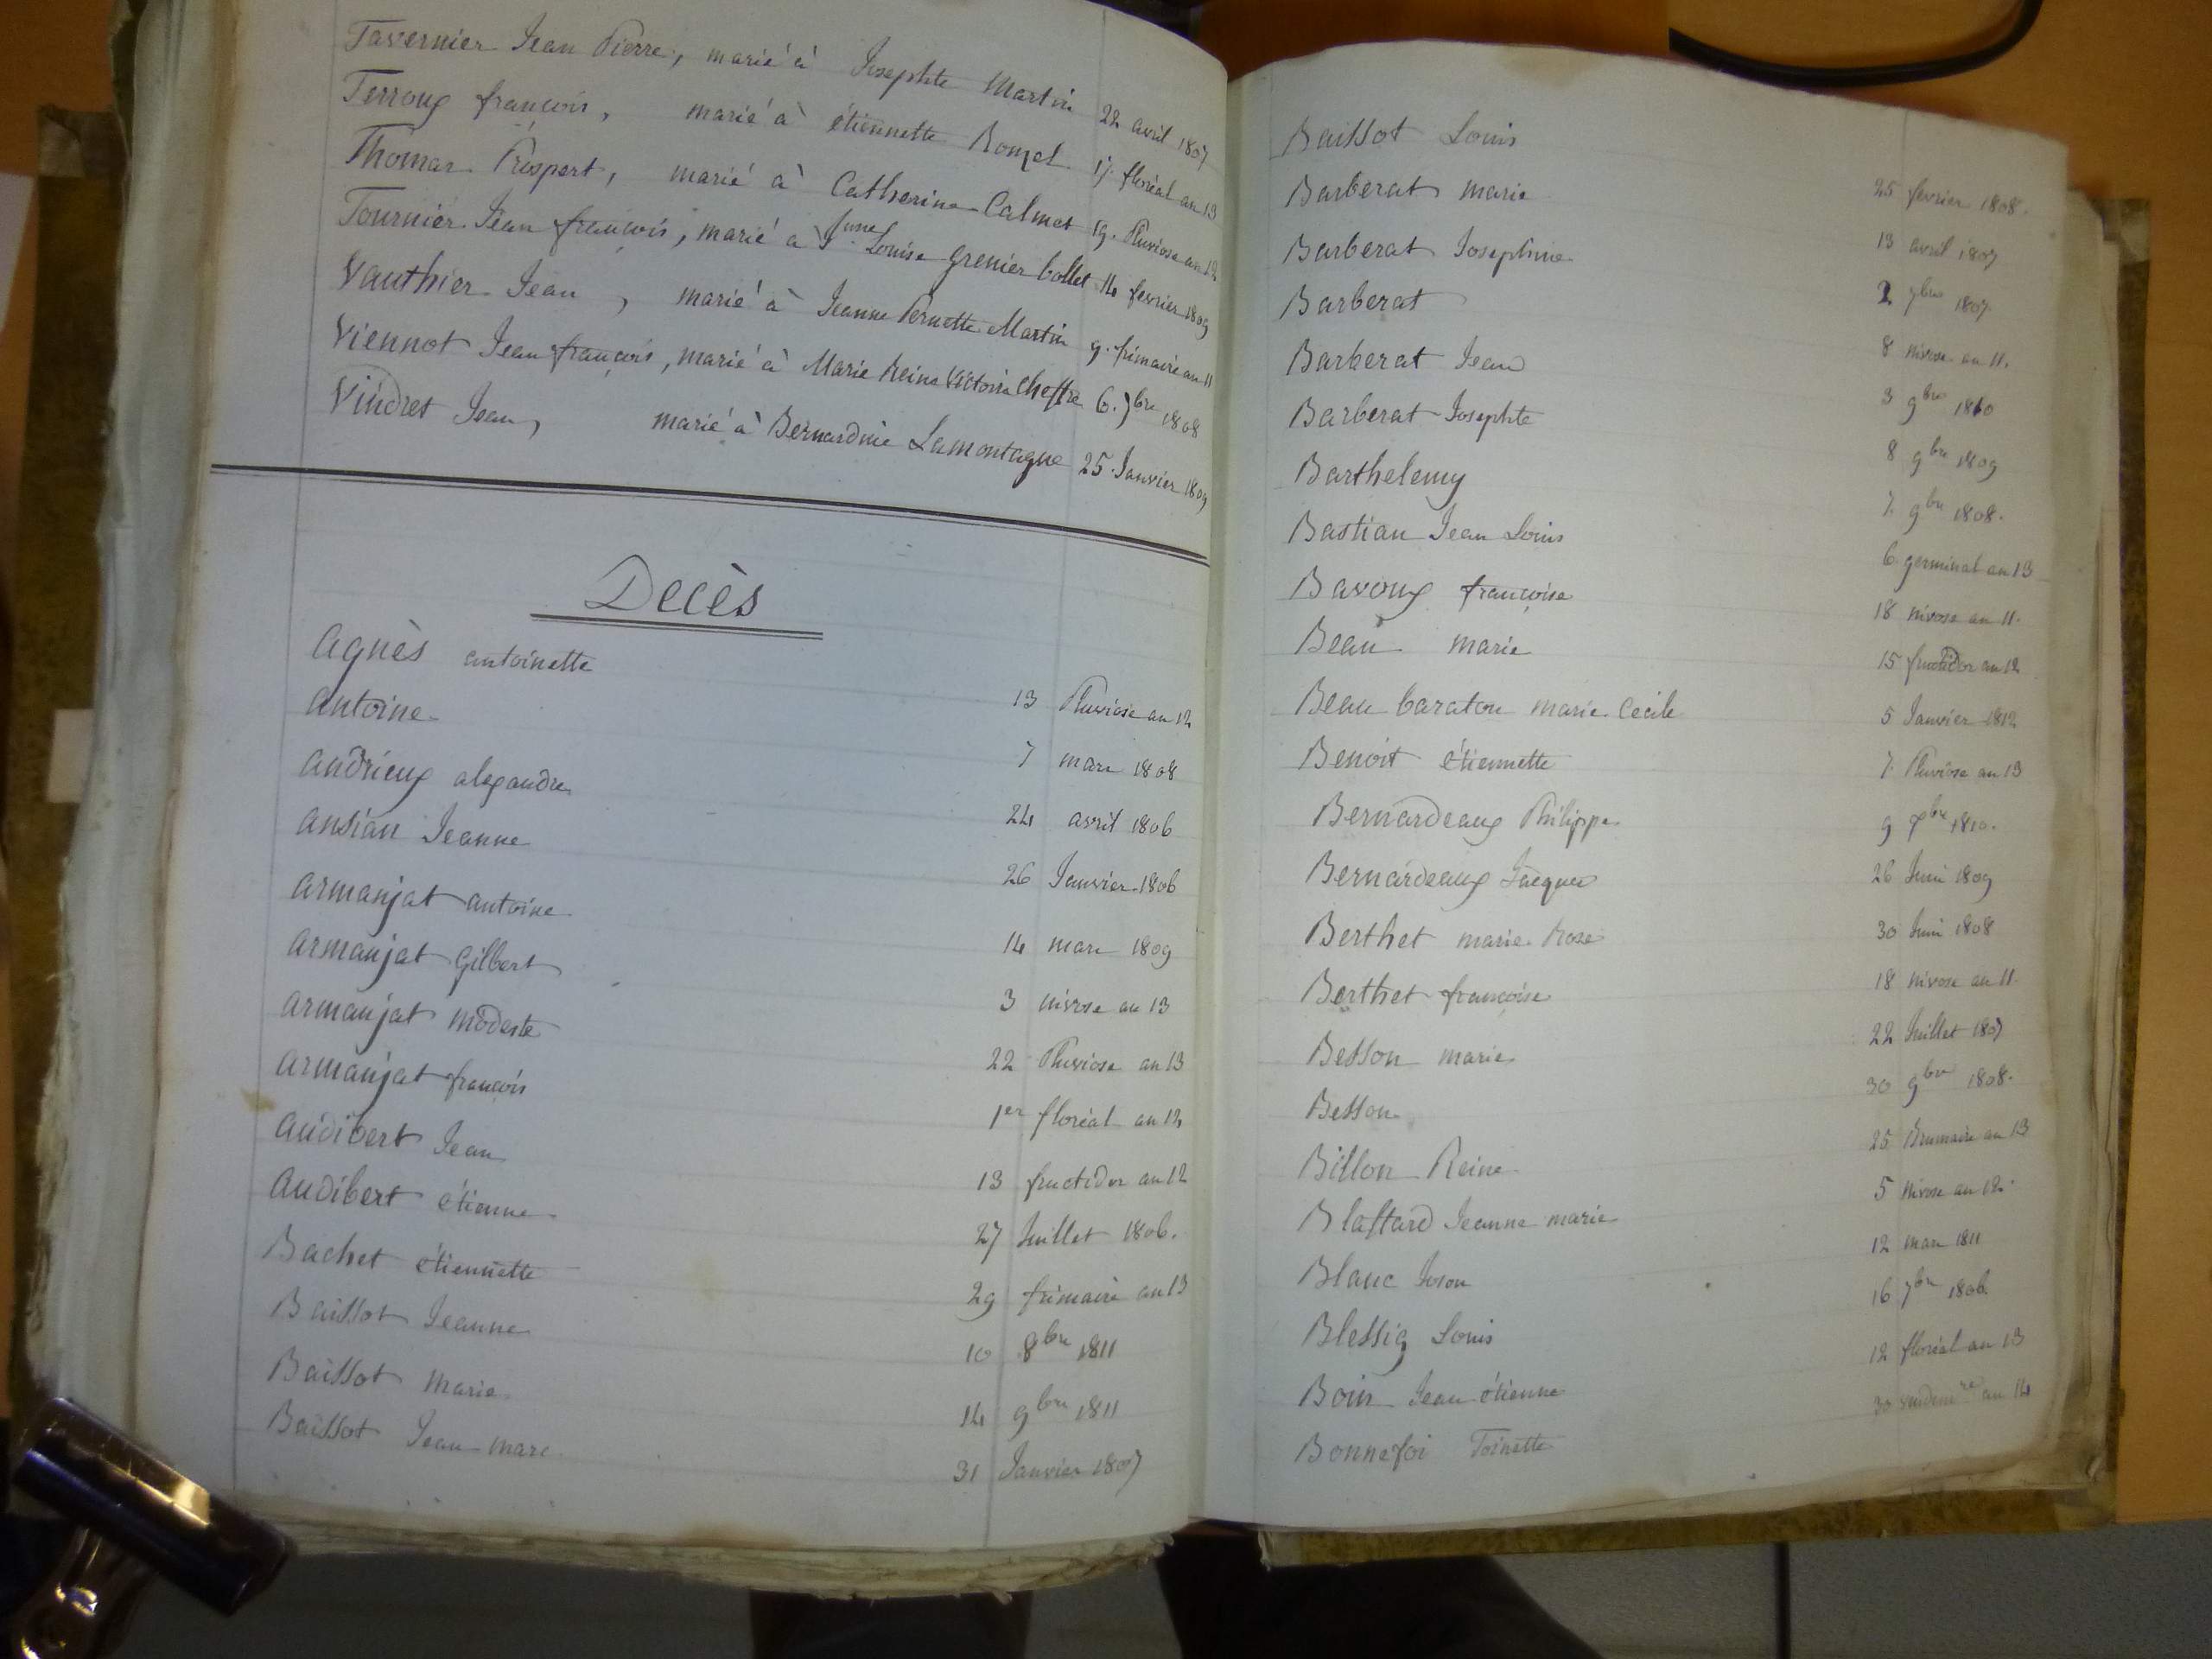 Tavernier Jean Pierre, marié à Josephte Martin 22 avril 1807
Terroux françois, marié à étiennette Rouzel 17 floréal an 13
Thomas Prospert, marié à Catherine Calmet 19 Pluviose an 12
Tournier Jean françois, marié à Jnne Louise grenier bollet 14 fevrier 1809
Vauthier Jean, marié à Jeanne Pernette Martin 9 frimaire an 11
Viennot Jean françois, marié à Marie Reine Victoire Cheffre 6 7bre 1808
Vindret Jean, marié à Bernardine Lamontagne 25 Janvier 1809
Decès
Agnès antoinette 13 Pluviose an 12
Antoine 7 mars 1808
Andrieux alexandre 24 avril 1806
Ansian Jeanne 26 Janvier 1806
Armanjat antoine 14 mars 1809
Armanjat Gilbert 3 nivose an 13
Armanjat modeste 22 Pluviose an 13
Armanjat françois 1er floréal an 12
Audibert Jean 13 fructidor an 12
Audibert étienne 27 Juillet 1806.
Bachet étiennette 29 frimaire an 13
Baissot Jeanne 10 8bre 1811
Baissot Marie 14 9bre 1811
Baissot Jean marc 31 Janvier 1807
Baissot Louis 25 fevrier 1808.
Barberat marie 13 avril 1807
Barberat Josephine 2 7bre 1807
Barberat 8 nivose an 11.
Barberat Jean 3 9bre 1810
Barberat Josephte 8 9bre 1809
Barthelemy 7 9bre 1808.
Bastian Jean Louis 6 germinal an 13
Bavoux françoise 18 nivose an 11.
Beau marie 15 fructidor an 12
Beau baraton marie Cecile 5 Janvier 1812
Benoit étiennette 7 Pluviose an 13
Bernardeaux Philippe 9 7bre 1810.
Bernardeaux Jacques 26 Juin 1809
Berthet marie Rose 30 Juin 1808
Berthet françoise 18 nivose an 11.
Besson marie 22 Juillet 1807
Besson 30 9bre 1808.
Billon Reine 25 Brumaire an 13
Blaffard Jeanne marie 5 Nivose an 12.
Blanc 12 mars 1811
Blessig Louis 16 7bre 1806.
Boin Jean étienne 12 floréal an 13
Bonnefoi Toinette 30 vendemre an 14